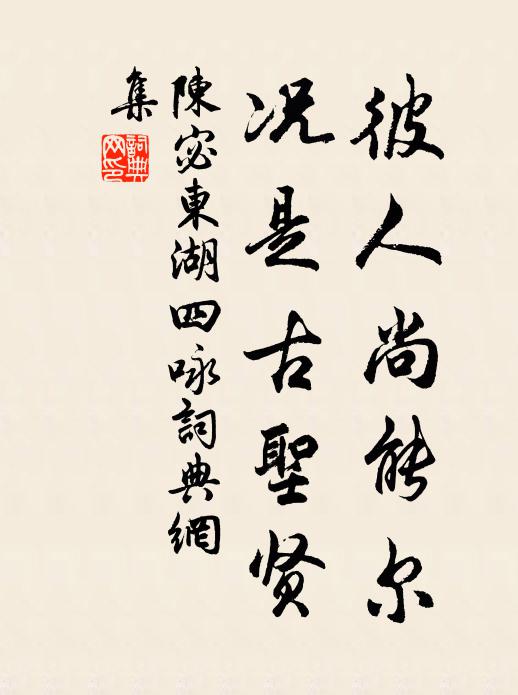 彼人尚能尔
况是古聖贤
陳宓東湖四咏詞典網
集
詞典網印